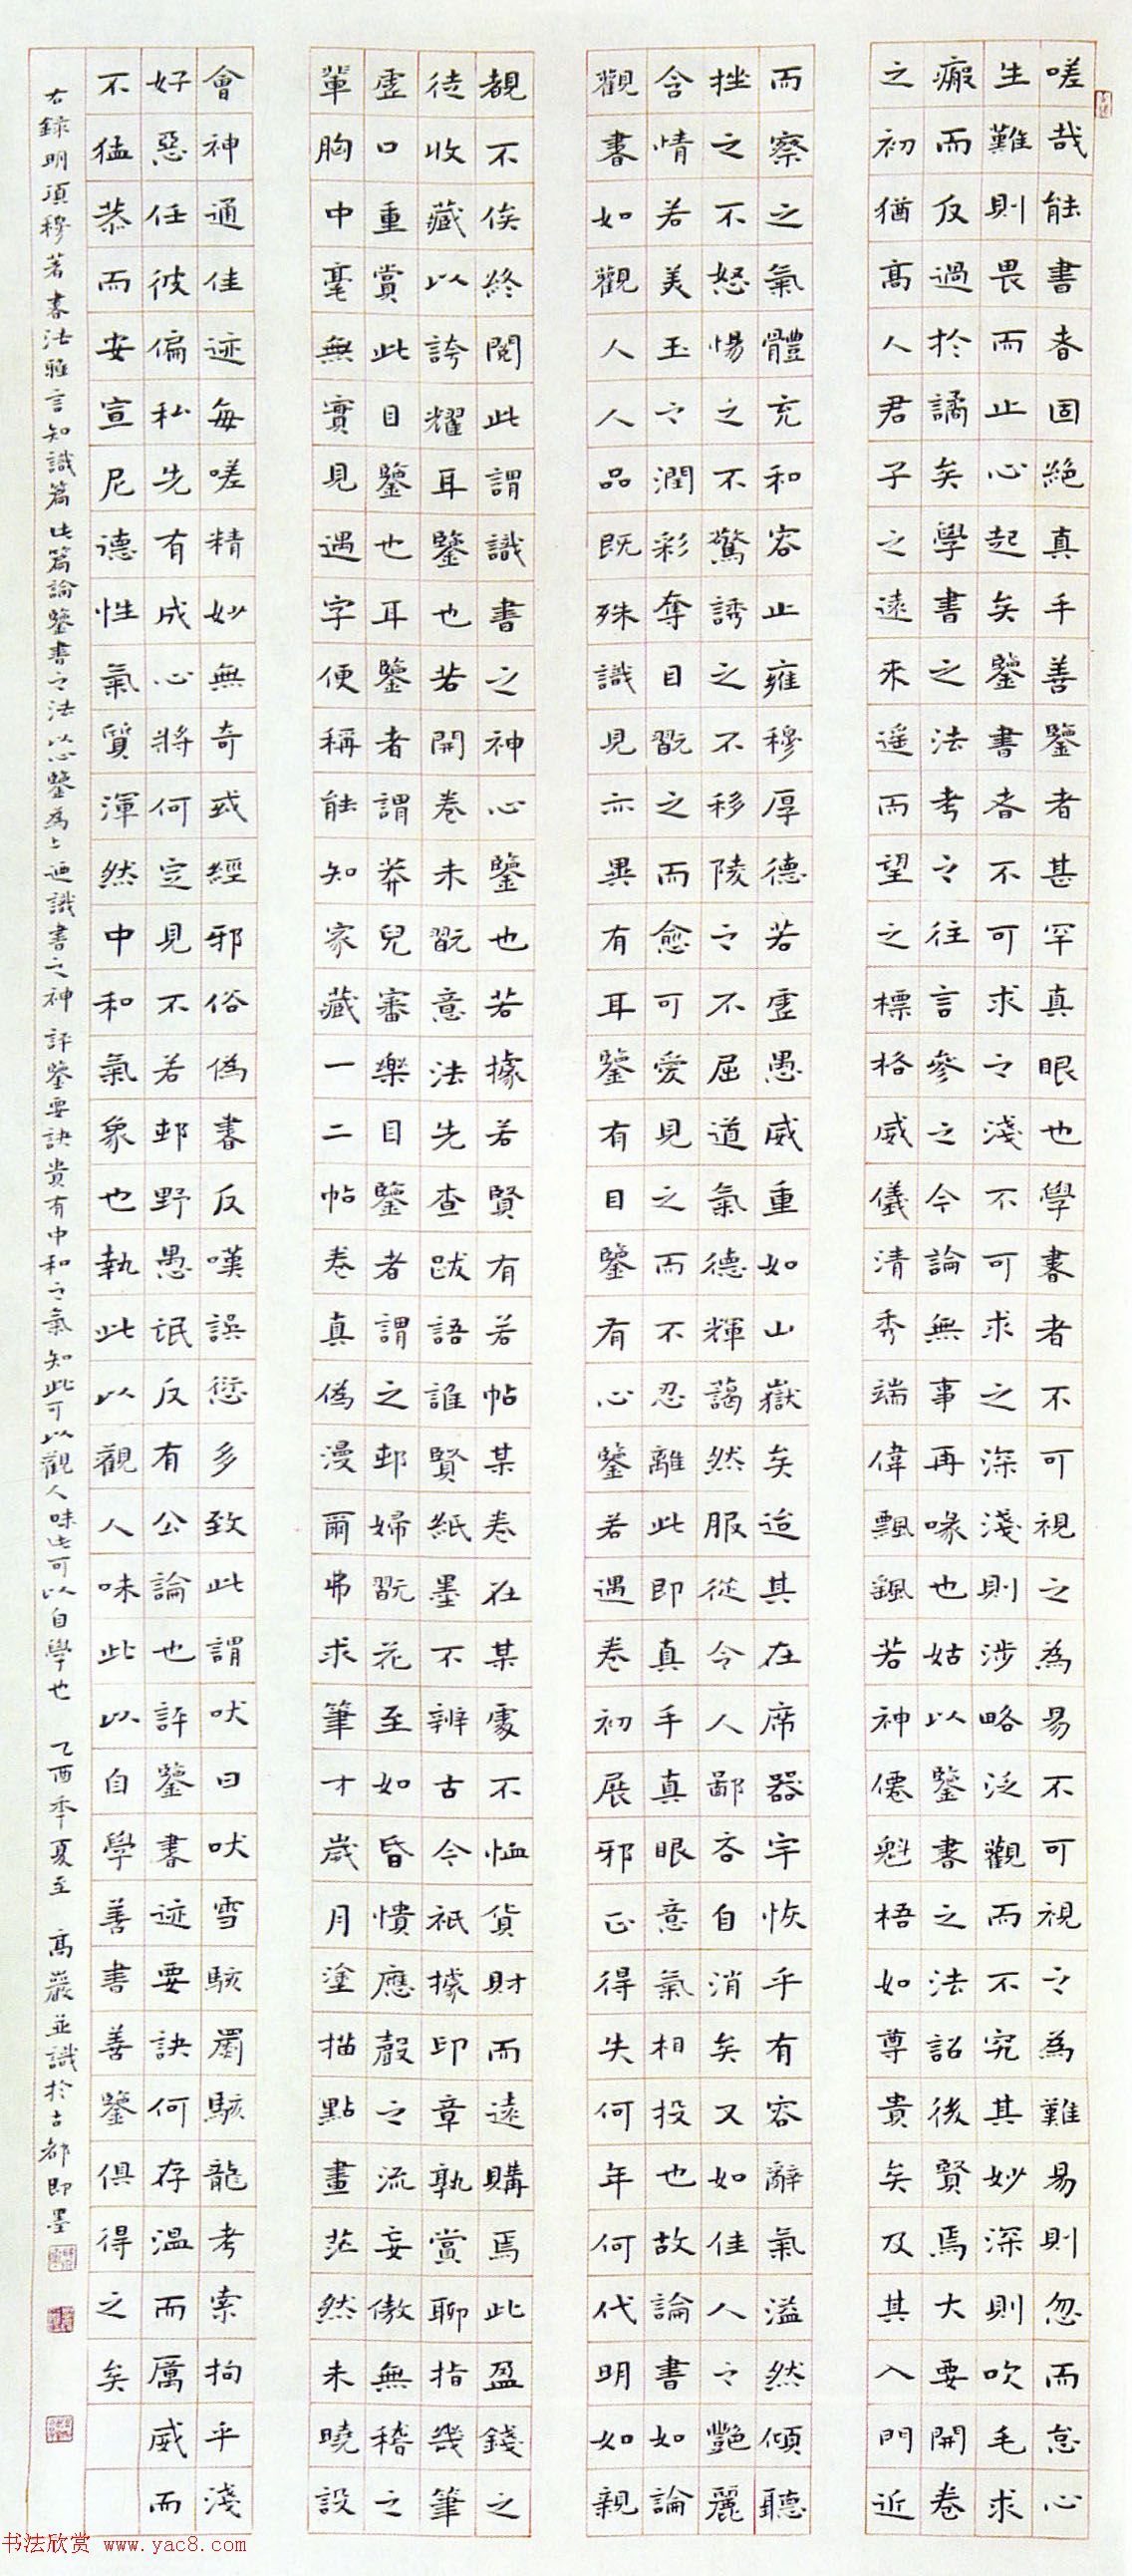 嗟哉能書者固絕真手善鑒者甚罕真眼也學書者不可視之為易不可視之為難易則忽而怠心
生難則畏而止心起矣鑒書者不可求之淺不可求之深淺則涉略泛觀而不究其妙深則吹毛求
瘢而反過於譎矣學書之法考之往言參之今論無事再喙也姑以鑒書之法詔後賢焉大要開卷
之初猶高人君子之遠來遥而望之標格威儀清秀端偉飄颻若神僊魁梧如尊貴矣及其入門近
而察之氣體充和容止雍穆厚德若虛愚威重如山嶽矣迨其在席器宇恢乎有容辭氣溢然傾聽
挫之不怒惕之不驚誘之不移陵之不屈道氣德輝藹然服從令人鄙吝自消矣又如佳人之艷麗
含情若美玉之潤彩奪目翫之而愈可愛見之而不忍離此即真手真眼意氣相投也故論書如論
觀書如觀人人品既殊識見亦異有耳鑒有目鑒有心鑒若遇卷初展邪正得失何年何代明如親
覩不俟終閱此謂識書之神心鑒也若據若賢有若帖某卷在某處不恤貨財而遠購焉此盈錢之
徒收藏以誇耀耳鑒也若開卷未翫意法先查跋語誰賢紙墨不辨古今祇據印章孰賞聊指幾筆
虛口重賞此目鑒也耳鑒者謂莽兒審樂目鑒者謂之邨婦翫花至如昏憒應聲之流妄傲無稽之
輩胸中毫無實見遇字便稱能知家藏一二帖卷真偽漫爾弗求筆才歲月塗描點畫茫然未曉設
會神通佳迹每嗟精妙無奇或經邪俗偽書反嘆誤愆多致此謂吠日吠雪駭罽駭龍考索拘乎淺
好惡任彼偏私先有成心將何定見不若邨野愚氓反有公論也評鑒書迹要訣何存温而厲威而
不猛恭而安宣尼德性氣質渾然中和氣象也執此以觀人味此以自學善書善鑒俱得之矣
右録明項穆著書法雅言知識篇此篇論鑒書之法以心鑒為上迺識書之神評鑒要訣貴有中和之氣知此可以觀人味此可以自學也 乙酉季夏至 高嚴並識於古都即墨
书法欣赏 www.yac8.com